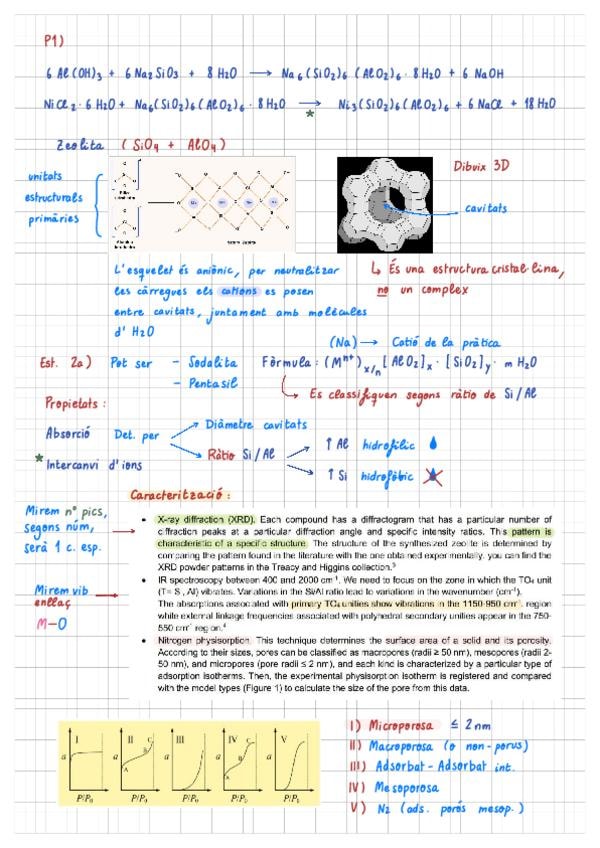 P1)
6 Al(OH)₃ + 6 Na₂SiO₃ + 8 H₂O → Na₆(SiO₂)₆ (AlO₂)₆ · 8 H₂O + 6 NaOH
NiCl₂ · 6 H₂O + Na₆(SiO₂)₆(AlO₂)₆ · 8 H₂O → Ni₃(SiO₂)₆(AlO₂)₆ + 6 NaCl + 18 H₂O
*
Zeolita (SiO₄ + AlO₄)
unitats
estructurals
primàries
Dibuix 3D
cavitats
L'esquelet és aniònic, per neutralitzar
les càrregues els cations es posen
entre cavitats, juntament amb molècules
d' H₂O
↳ És una estructura cristal·lina,
no un complex
(Na) → Catió de la pràctica
Est. 2a) Pot ser - Sodalita
- Pentasil
Fórmula: (Mⁿ⁺)ₓ/ₙ [AlO₂]ₓ · [SiO₂]ᵧ · m H₂O
Es classifiquen segons ràtio de Si/Al
Propietats:
Absorció Det. per
Diàmetre cavitats
Ràtio Si/Al
↑ Al hidrofílic
↑ Si hidrofòbic
* Intercanvi d'ions
Caracterització:
Mirem nº pics,
segons núm,
serà 1 c. esp.
• X-ray diffraction (XRD). Each compound has a diffractogram that has a particular number of
diffraction peaks at a particular diffraction angle and specific intensity ratios. This pattern is
characteristic of a specific structure. The structure of the synthesized zeolite is determined by
comparing the pattern found in the literature with the one obtained experimentally. you can find the
XRD powder patterns in the Treacy and Higgins collection.³
Mirem vib
enllaç
M-O
• IR spectroscopy between 400 and 2000 cm⁻¹. We need to focus on the zone in which the TO₄ unit
(T= S , Al) vibrates. Variations in the Si/Al ratio lead to variations in the wavenumber (cm⁻¹).
The absorptions associated with primary TO₄ unities show vibrations in the 1150-950 cm⁻¹, region
while external linkage frequencies associated with polyhedral secondary unities appear in the 750-
550 cm⁻¹ region.⁴
• Nitrogen physisorption. This technique determines the surface area of a solid and its porosity.
According to their sizes, pores can be classified as macropores (radii ≥ 50 nm), mesopores (radii 2-
50 nm), and micropores (pore radii ≤ 2 nm), and each kind is characterized by a particular type of
adsorption isotherms. Then, the experimental physisorption isotherm is registered and compared
with the model types (Figure 1) to calculate the size of the pore from this data.
I II III IV V
a a a a a
A B C A B C
P/P₀ P/P₀ P/P₀ P/P₀ P/P₀
I) Microporosa ≤ 2 nm
II) Macroporosa (o non-porus)
III) Adsorbat-Adsorbat int.
IV) Mesoporosa
V) N₂ (ads. porós mesop.)